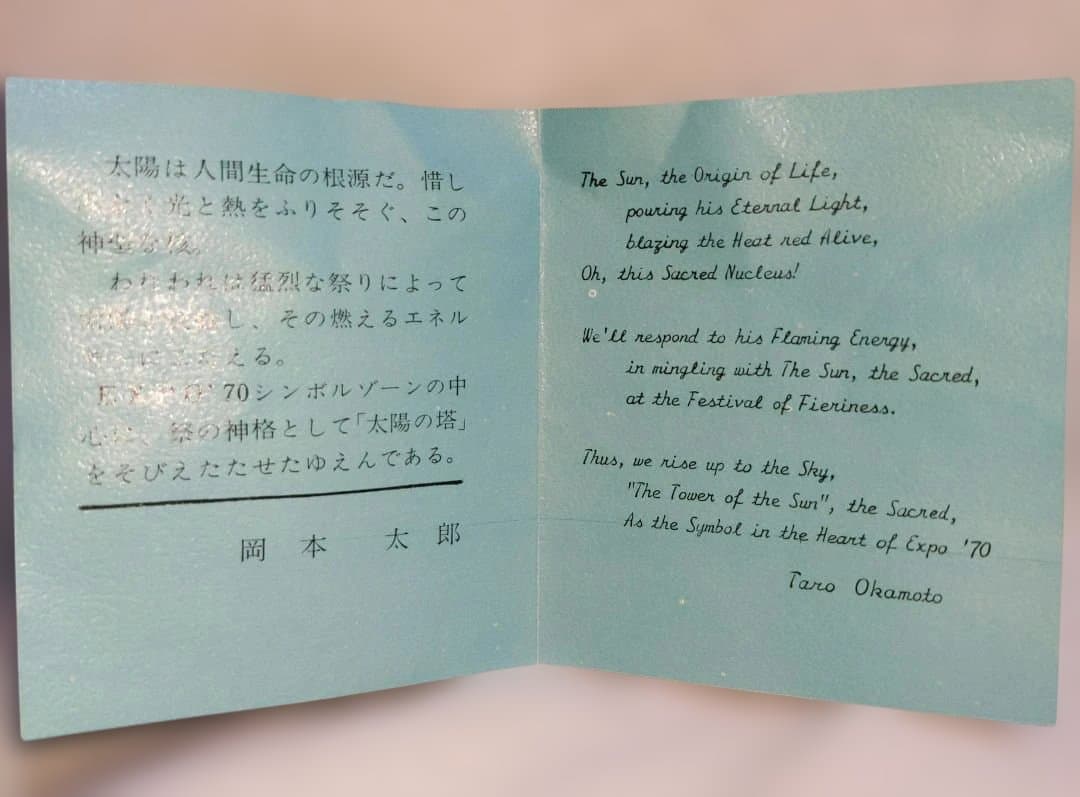 太陽は人間生命の根源だ。惜し
光と熱をふりそそぐ、この
神聖な核。
われわれは猛烈な祭りによって
し、その燃えるエネル
える。
EXPO'70シンボルゾーンの中
心に、祭の神格として「太陽の塔」
をそびえたたせたゆえんである。
岡本 太郎
The Sun, the Origin of Life,
pouring his Eternal Light,
blazing the Heat red Alive,
Oh, this Sacred Nucleus!
We'll respond to his Flaming Energy,
in mingling with The Sun, the Sacred,
at the Festival of Fieriness.
Thus, we rise up to the Sky,
"The Tower of the Sun", the Sacred,
As the Symbol in the Heart of Expo '70
Taro Okamoto